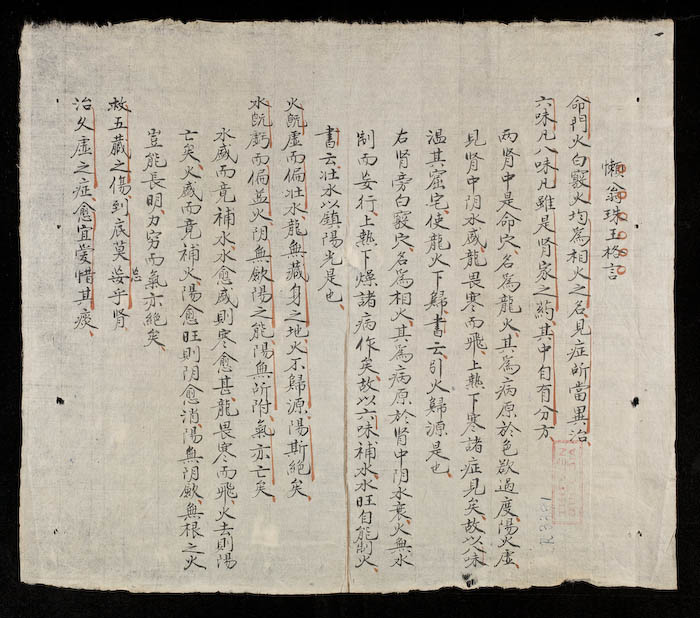 懶翁珠玉格言
命門火白竅火均為相火之名見症所當異治
六味凡八味凡雖是肾家之葯其中自有分方
两肾中是命穴名為龍火其為病原於色欲過度陽火虚
見肾中阴水盛龍畏寒而飛上熱下寒諸症見矣故以八味
温其窟宅使龍火下歸書云引火歸源是也
右肾旁白竅穴名為相火其為病原於肾中阴水衰火無水
制而妄行上熱下燥諸病作矣故以六味補水水旺自能制火
書云壮水以鎮陽光是也
火既虚而偏壮水龍無藏身之地火不歸源陽斯絶矣
水既虧而偏益火阴無歛陽之能陽無所附氣亦亡矣
水盛而竟補水水愈盛則寒愈甚龍畏寒而飛火去則陽
亡矣火盛而竟補火陽愈旺則阴愈消陽無阴歛無根之火
豈能長明力穷而氣亦絶矣
救五臓之傷到底莫妄乎肾
忘
治久虚之症愈宜愛惜其痰